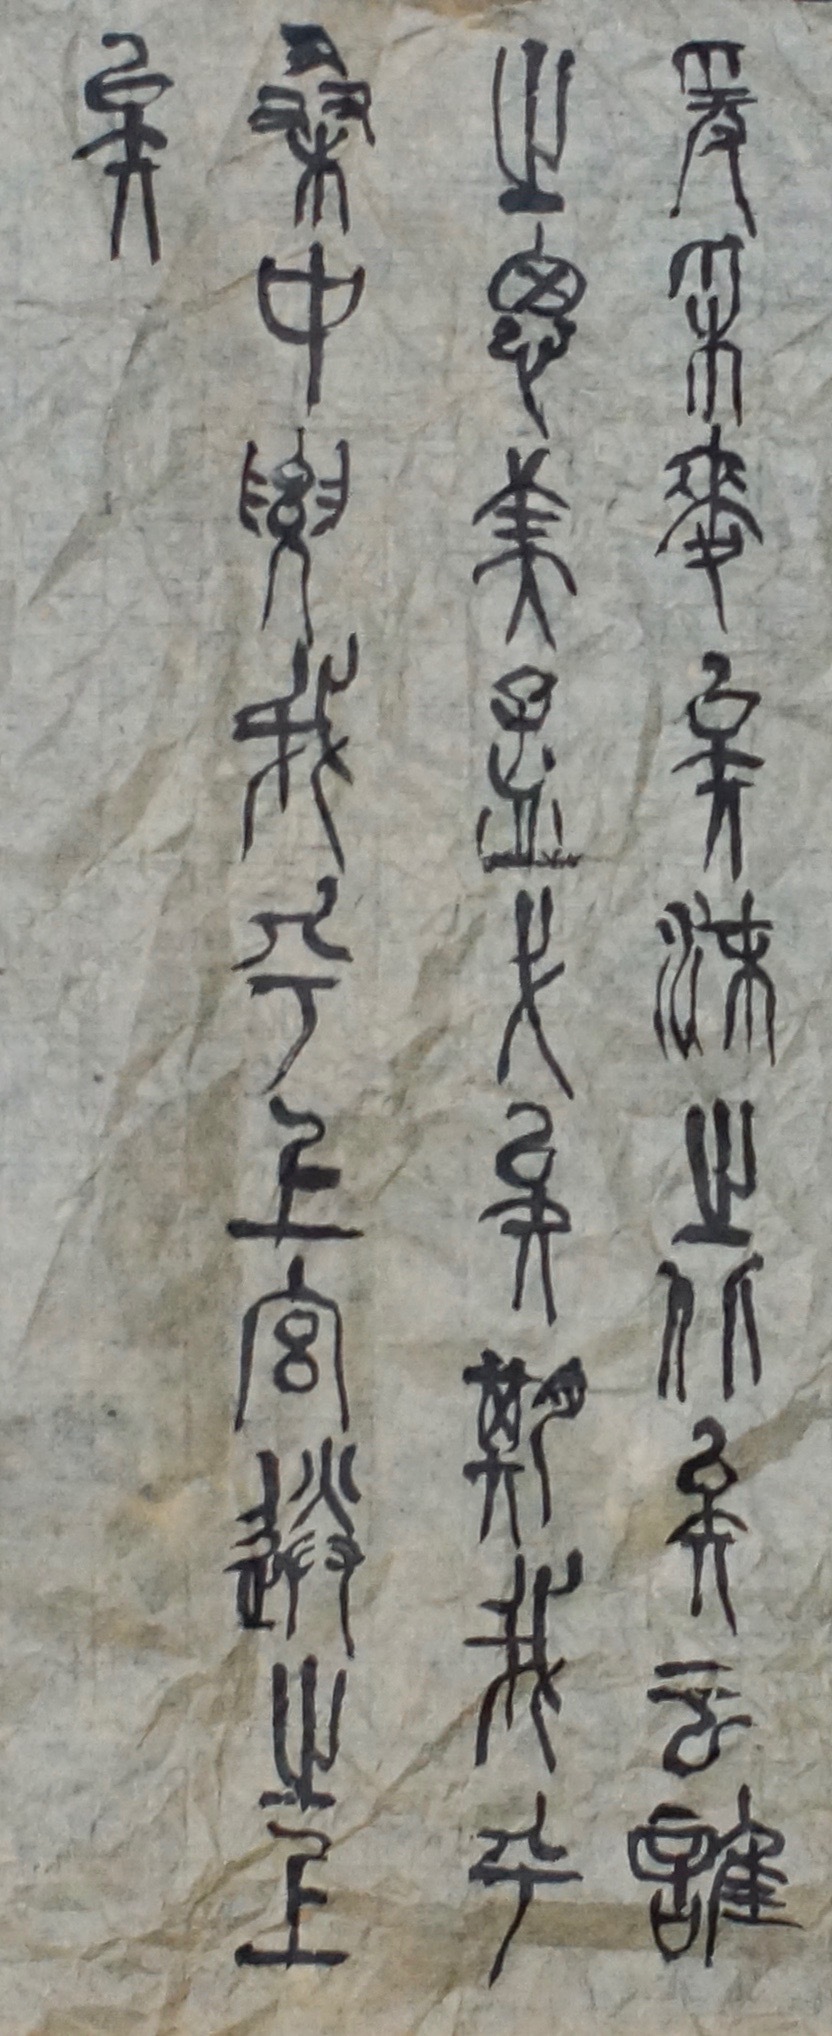 爰采麥矣沬之北矣云誰
之思美孟弋矣期我乎
桑中要我乎上宮送之上
矣